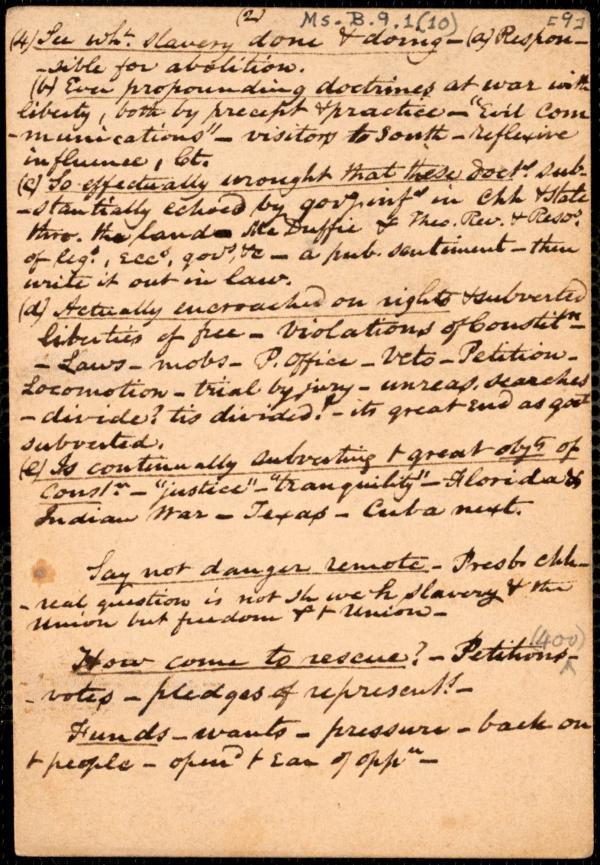 (2) Ms. B. 9.1(10) [9]
(4) See wht. slavery done & doing - (a) Respon-
-sible for abolition.
(b) Ever propounding doctrines at war with
liberty, both by precept & practice - "Evil com
-munications" - visitors to South - reflexive
influence,
(c) So effectually wrought that these Docts. sub-
-stantially echoed by govg. infs. in Chh & State
thro. the land - McDuffie & Theo. Rev. & Resos.
of legs., Eccs., govs. &c - a pub. sentiment - then
write it out in law.
(d) Actually encroached on rights & subverted
liberties of free - violations of Constitn -
- Laws - mobs - P. office - Veto - Petition -
Locomotion - trial by jury - unreas. searches
- divide? tis divided! - its great end as govt
subverted.
(e) Is continually subverting t great objts of
Constn - "justice" - "tranquility" - Florida &
Indian War - Texas - Cuba next.
Say not danger remote - Presb. chh -
- real question is not sh we h slavery & the
Union but freedom & t Union -
(400)
How come to rescue? - Petitions -
- votes - pledges of represents. -
Funds - wants - pressure - back on
t people - opend t Ear of oppn -